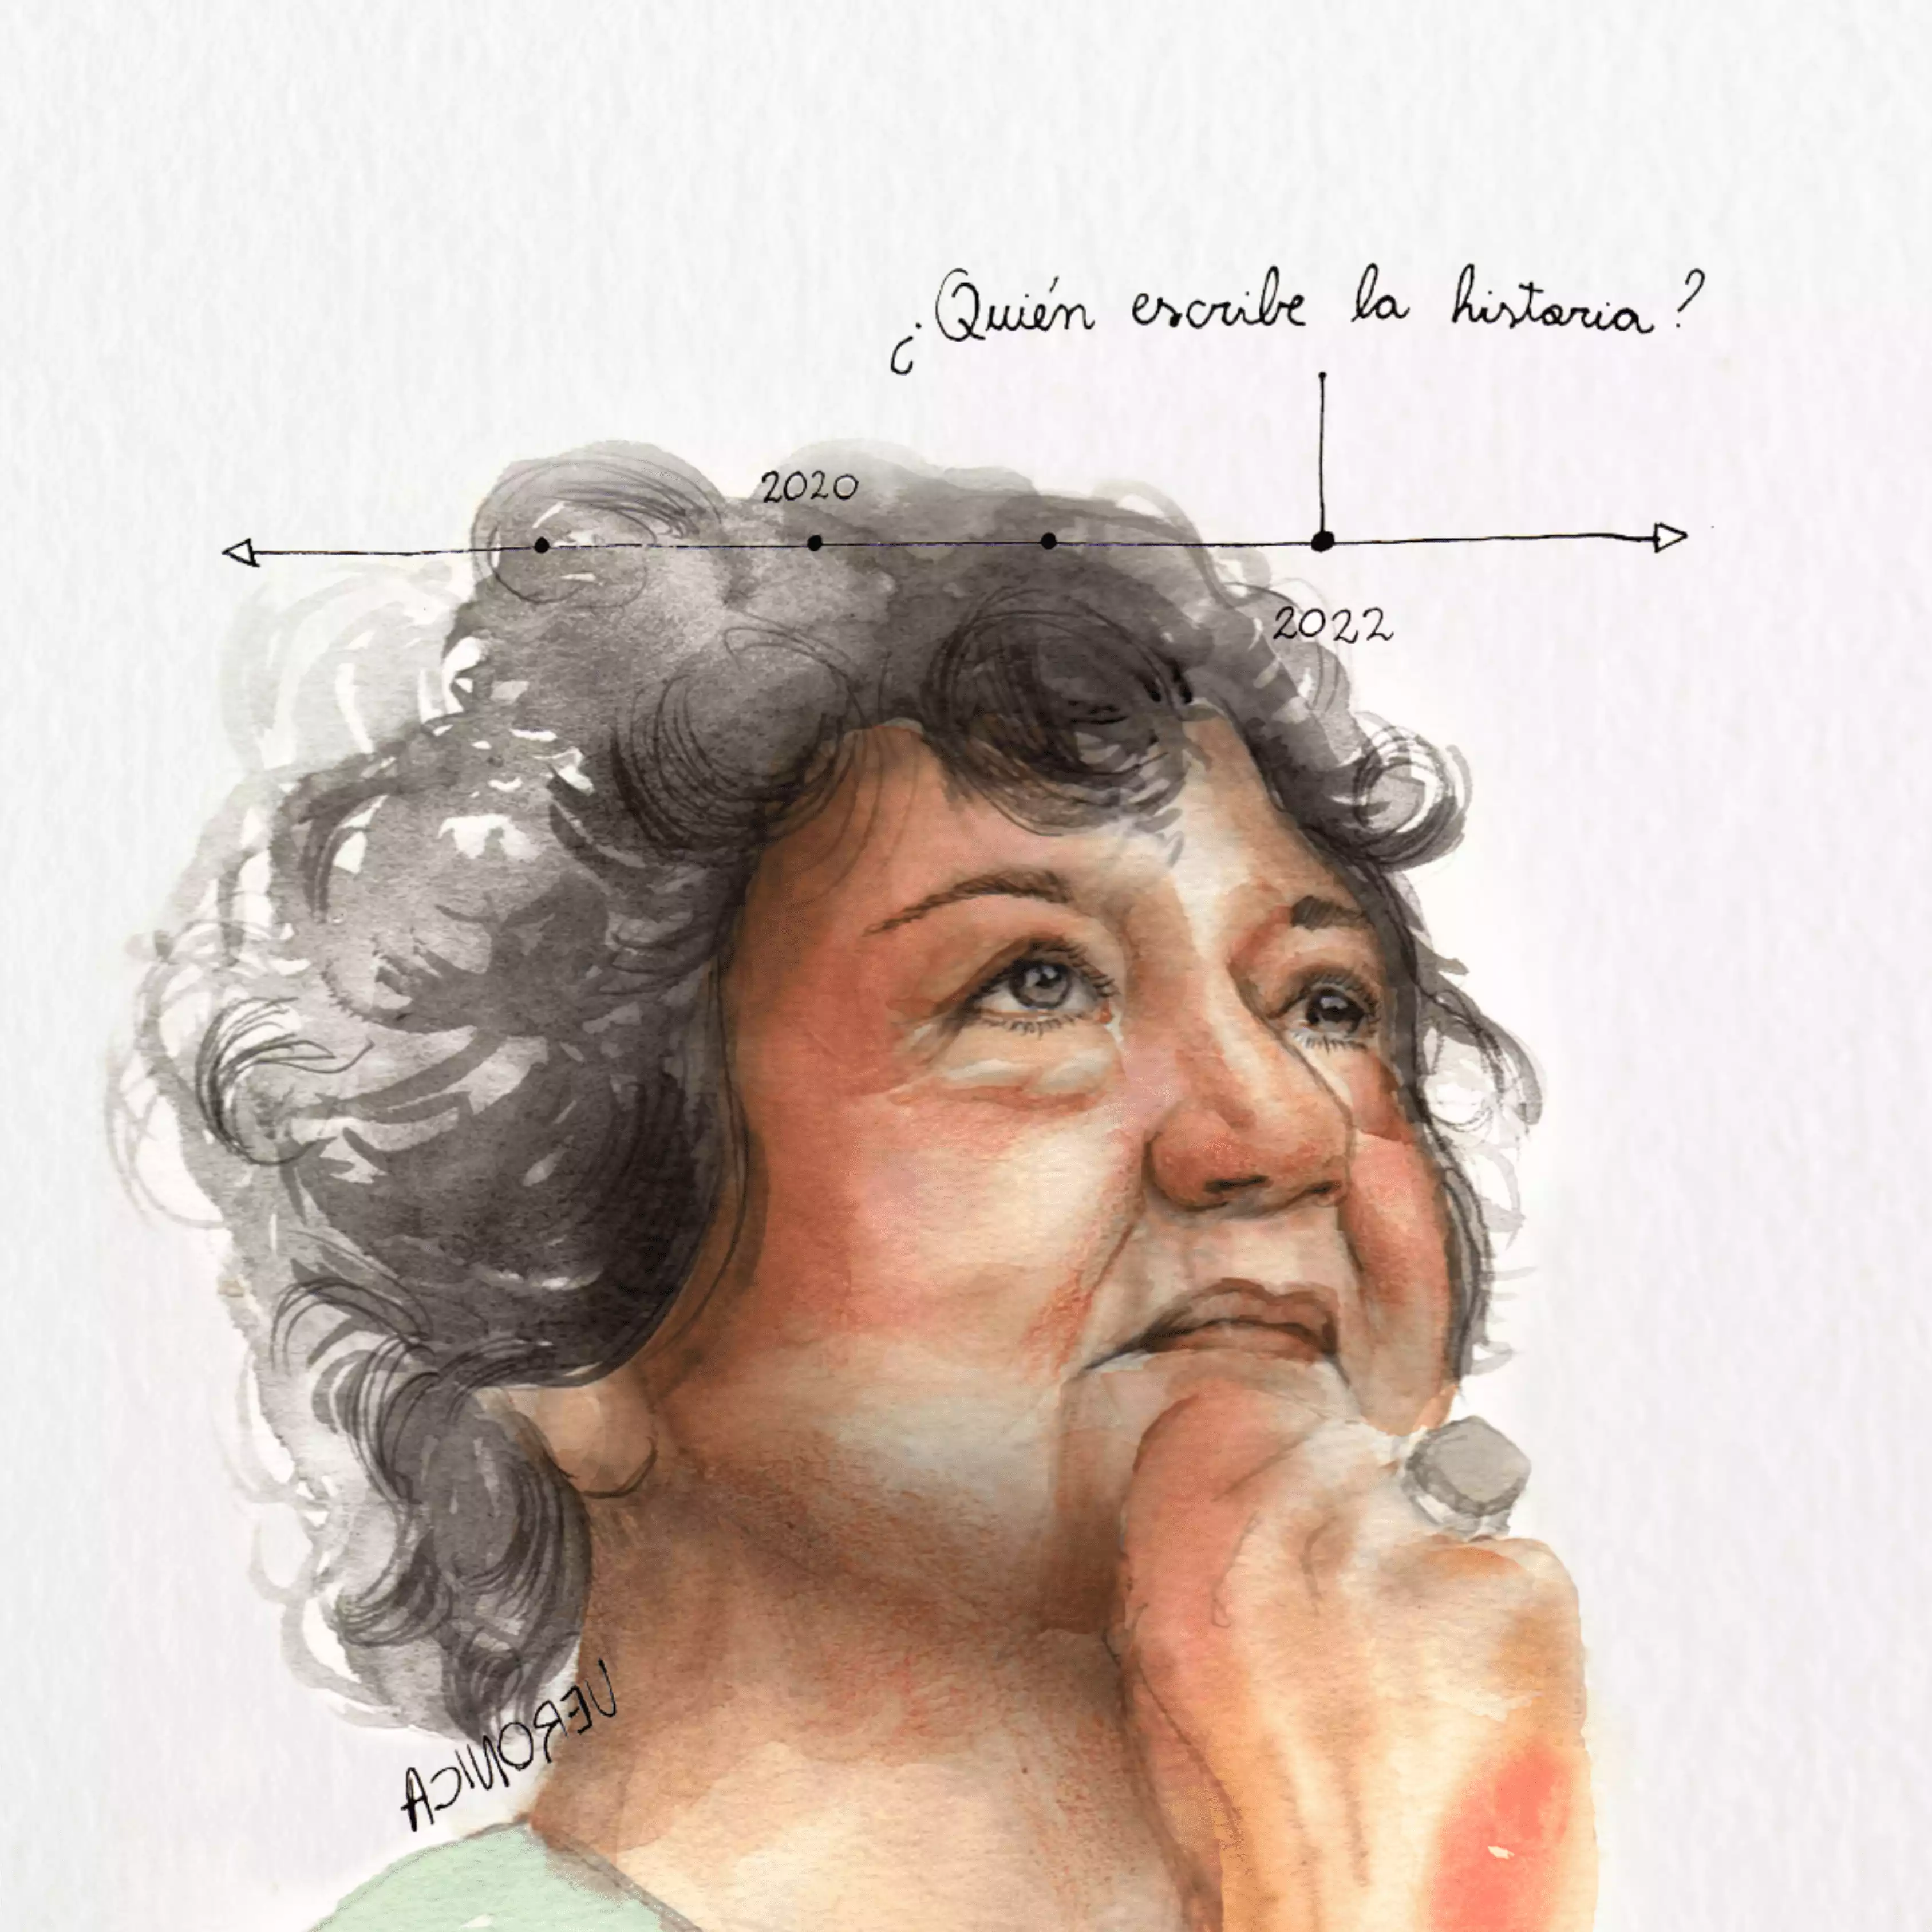 ¿Quién escribe la historia?
2020
2022
VERONICA